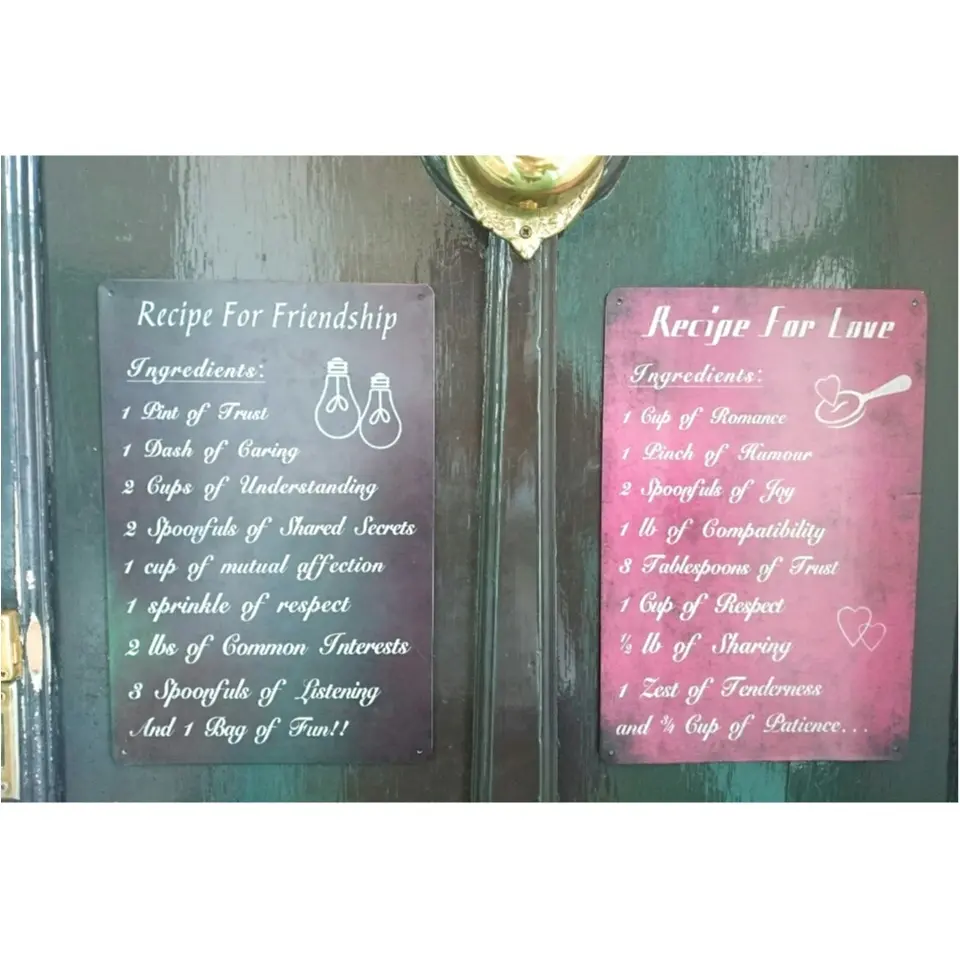 Recipe For Friendship
Ingredients:
1 Pint of Trust
1 Dash of Caring
2 Cups of Understanding
2 Spoonfuls of Shared Secrets
1 cup of mutual affection
1 sprinkle of respect
2 lbs of Common Interests
3 Spoonfuls of Listening
And 1 Bag of Fun!!
Recipe For Love
Ingredients:
1 Cup of Romance
1 Pinch of Humour
2 Spoonfuls of Joy
1 lb of Compatibility
3 Tablespoons of Trust
1 Cup of Respect
½ lb of Sharing
1 Zest of Tenderness
and ¾ Cup of Patience...